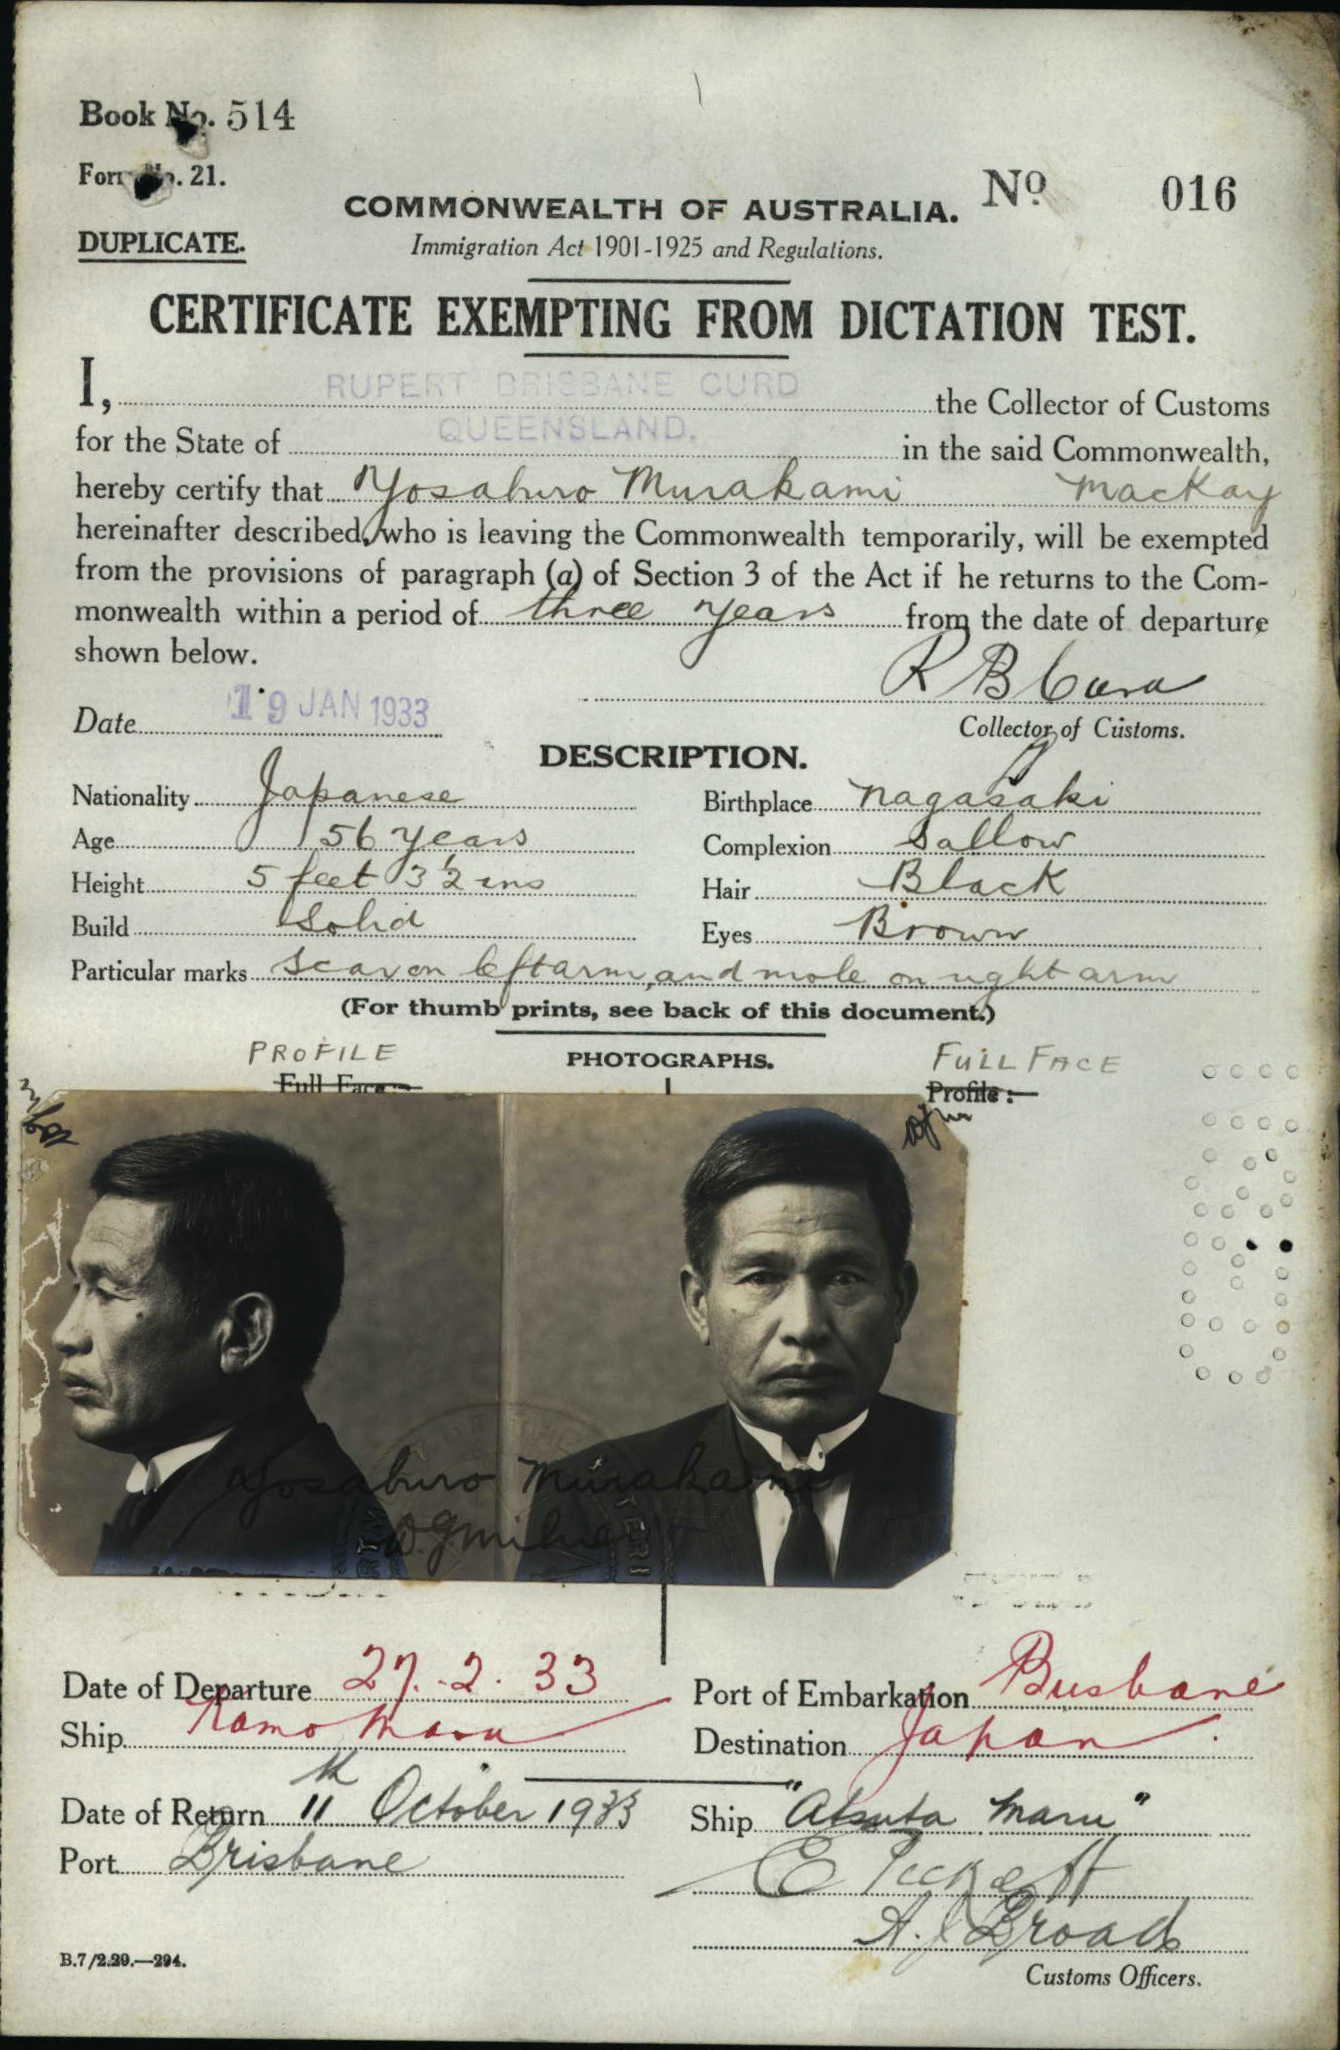 Book No. 514
Form No. 21.
COMMONWEALTH OF AUSTRALIA. No 016
DUPLICATE.
Immigration Act 1901-1925 and Regulations.
CERTIFICATE EXEMPTING FROM DICTATION TEST.
I, RUPERT BRISBANE CURD the Collector of Customs
for the State of QUEENSLAND. in the said Commonwealth,
hereby certify that Yosaburo Murakami Mackay
hereinafter described, who is leaving the Commonwealth temporarily, will be exempted
from the provisions of paragraph (a) of Section 3 of the Act if he returns to the Com-
monwealth within a period of three years from the date of departure
shown below.
R B Curd
Date 19 JAN 1933
Collector of Customs.
DESCRIPTION.
Nationality Japanese Birthplace Nagasaki
Age 56 years Complexion Sallow
Height 5 feet 3½ ins Hair Black
Build Solid Eyes Brown
Particular marks Scar on left arm, and mole on right arm
(For thumb prints, see back of this document.)
PROFILE PHOTOGRAPHS. FULL FACE
Full Face:— Profile:—
Yosaburo Murakami
Date of Departure 27.2.33 Port of Embarkation Brisbane
Ship Kamo Maru Destination Japan
Date of Return 11th October 1933 Ship "Atsuta Maru"
Port Brisbane
A. J. Broad
B.7/2.29.—294.
Customs Officers.